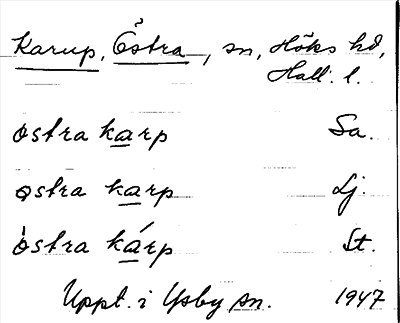 Karup, Östra, sn, Höks hd,
Hall. l.
östra karp Sa.
östra karp Lj.
östra kárp St.
Uppt. i Ysby sn. 1947